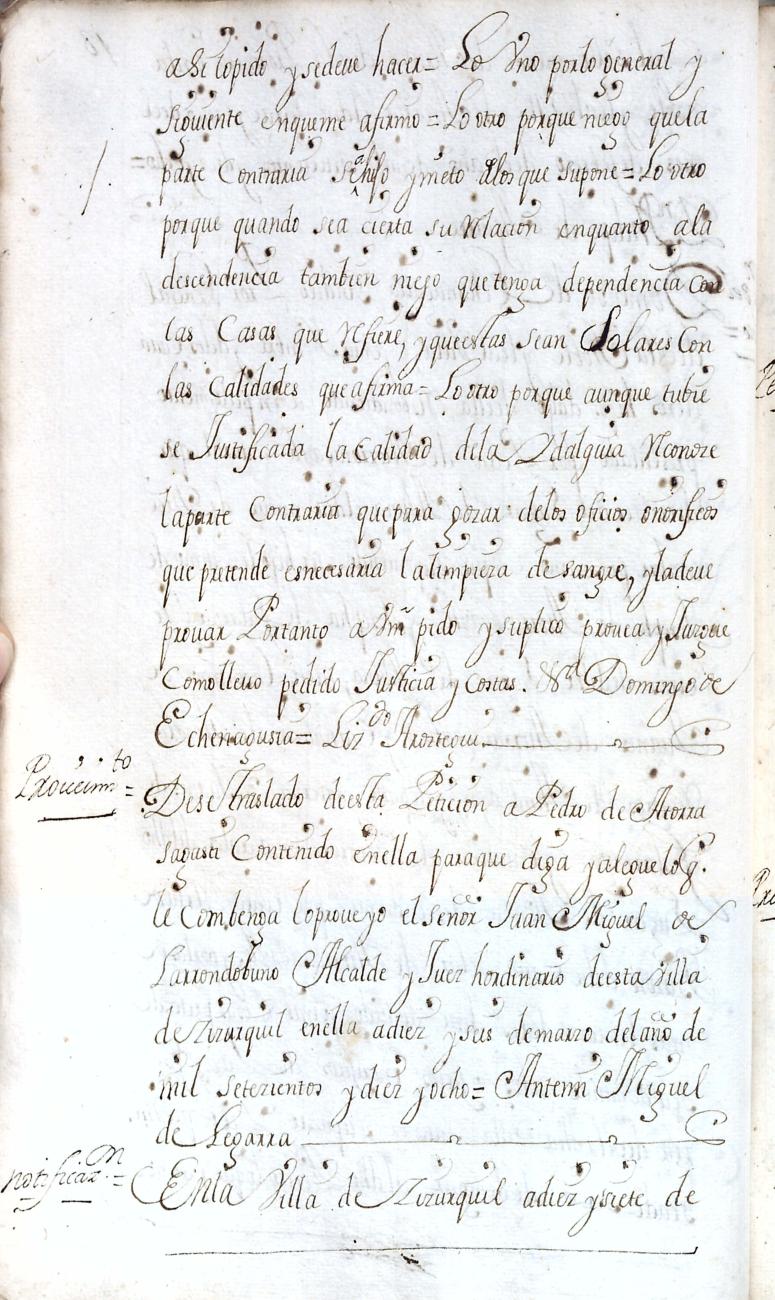 asi lo pido y se deve hacer = Lo Vno por lo general y
siguiente en que me afirmo = Lo otro porque niego que la
parte Contraria sea hijo y nieto de los que supone = Lo otro
porque quando sea cierta su Relacion en quanto a la
descendencia tambien niego que tenga dependencia con
las Casas que Refiere, y que estas sean Solares Con
las Calidades que afirma = Lo otro porque aunque tubie
se Justificada la Calidad de la Ydalguia Reconoze
la parte Contraria que para gozar de los oficios onorificos
que pretende es necesaria la limpieza de sangre, y la deve
provar Por tanto a Vm pido y suplico provea y Juzgue
Como llevo pedido Justicia y Costas. Domingo de
Echenagusia = Lizdo Aroztegui
Proveimto =
Dese Traslado de esta Peticion a Pedro de Atorra
sagasti Contenido en ella para que diga y alegue lo q.
le Combenga lo proveyo el señor Juan Miguel de
Larrondobuno Alcalde y Juez hordinario de esta Villa
de Zizurquil en ella a diez y seis de marzo del año de
mil setezientos y diez y ocho = Antemi Miguel
de Legarra
notificaz.n =
En la Villa de Zizurquil a diez y siete de